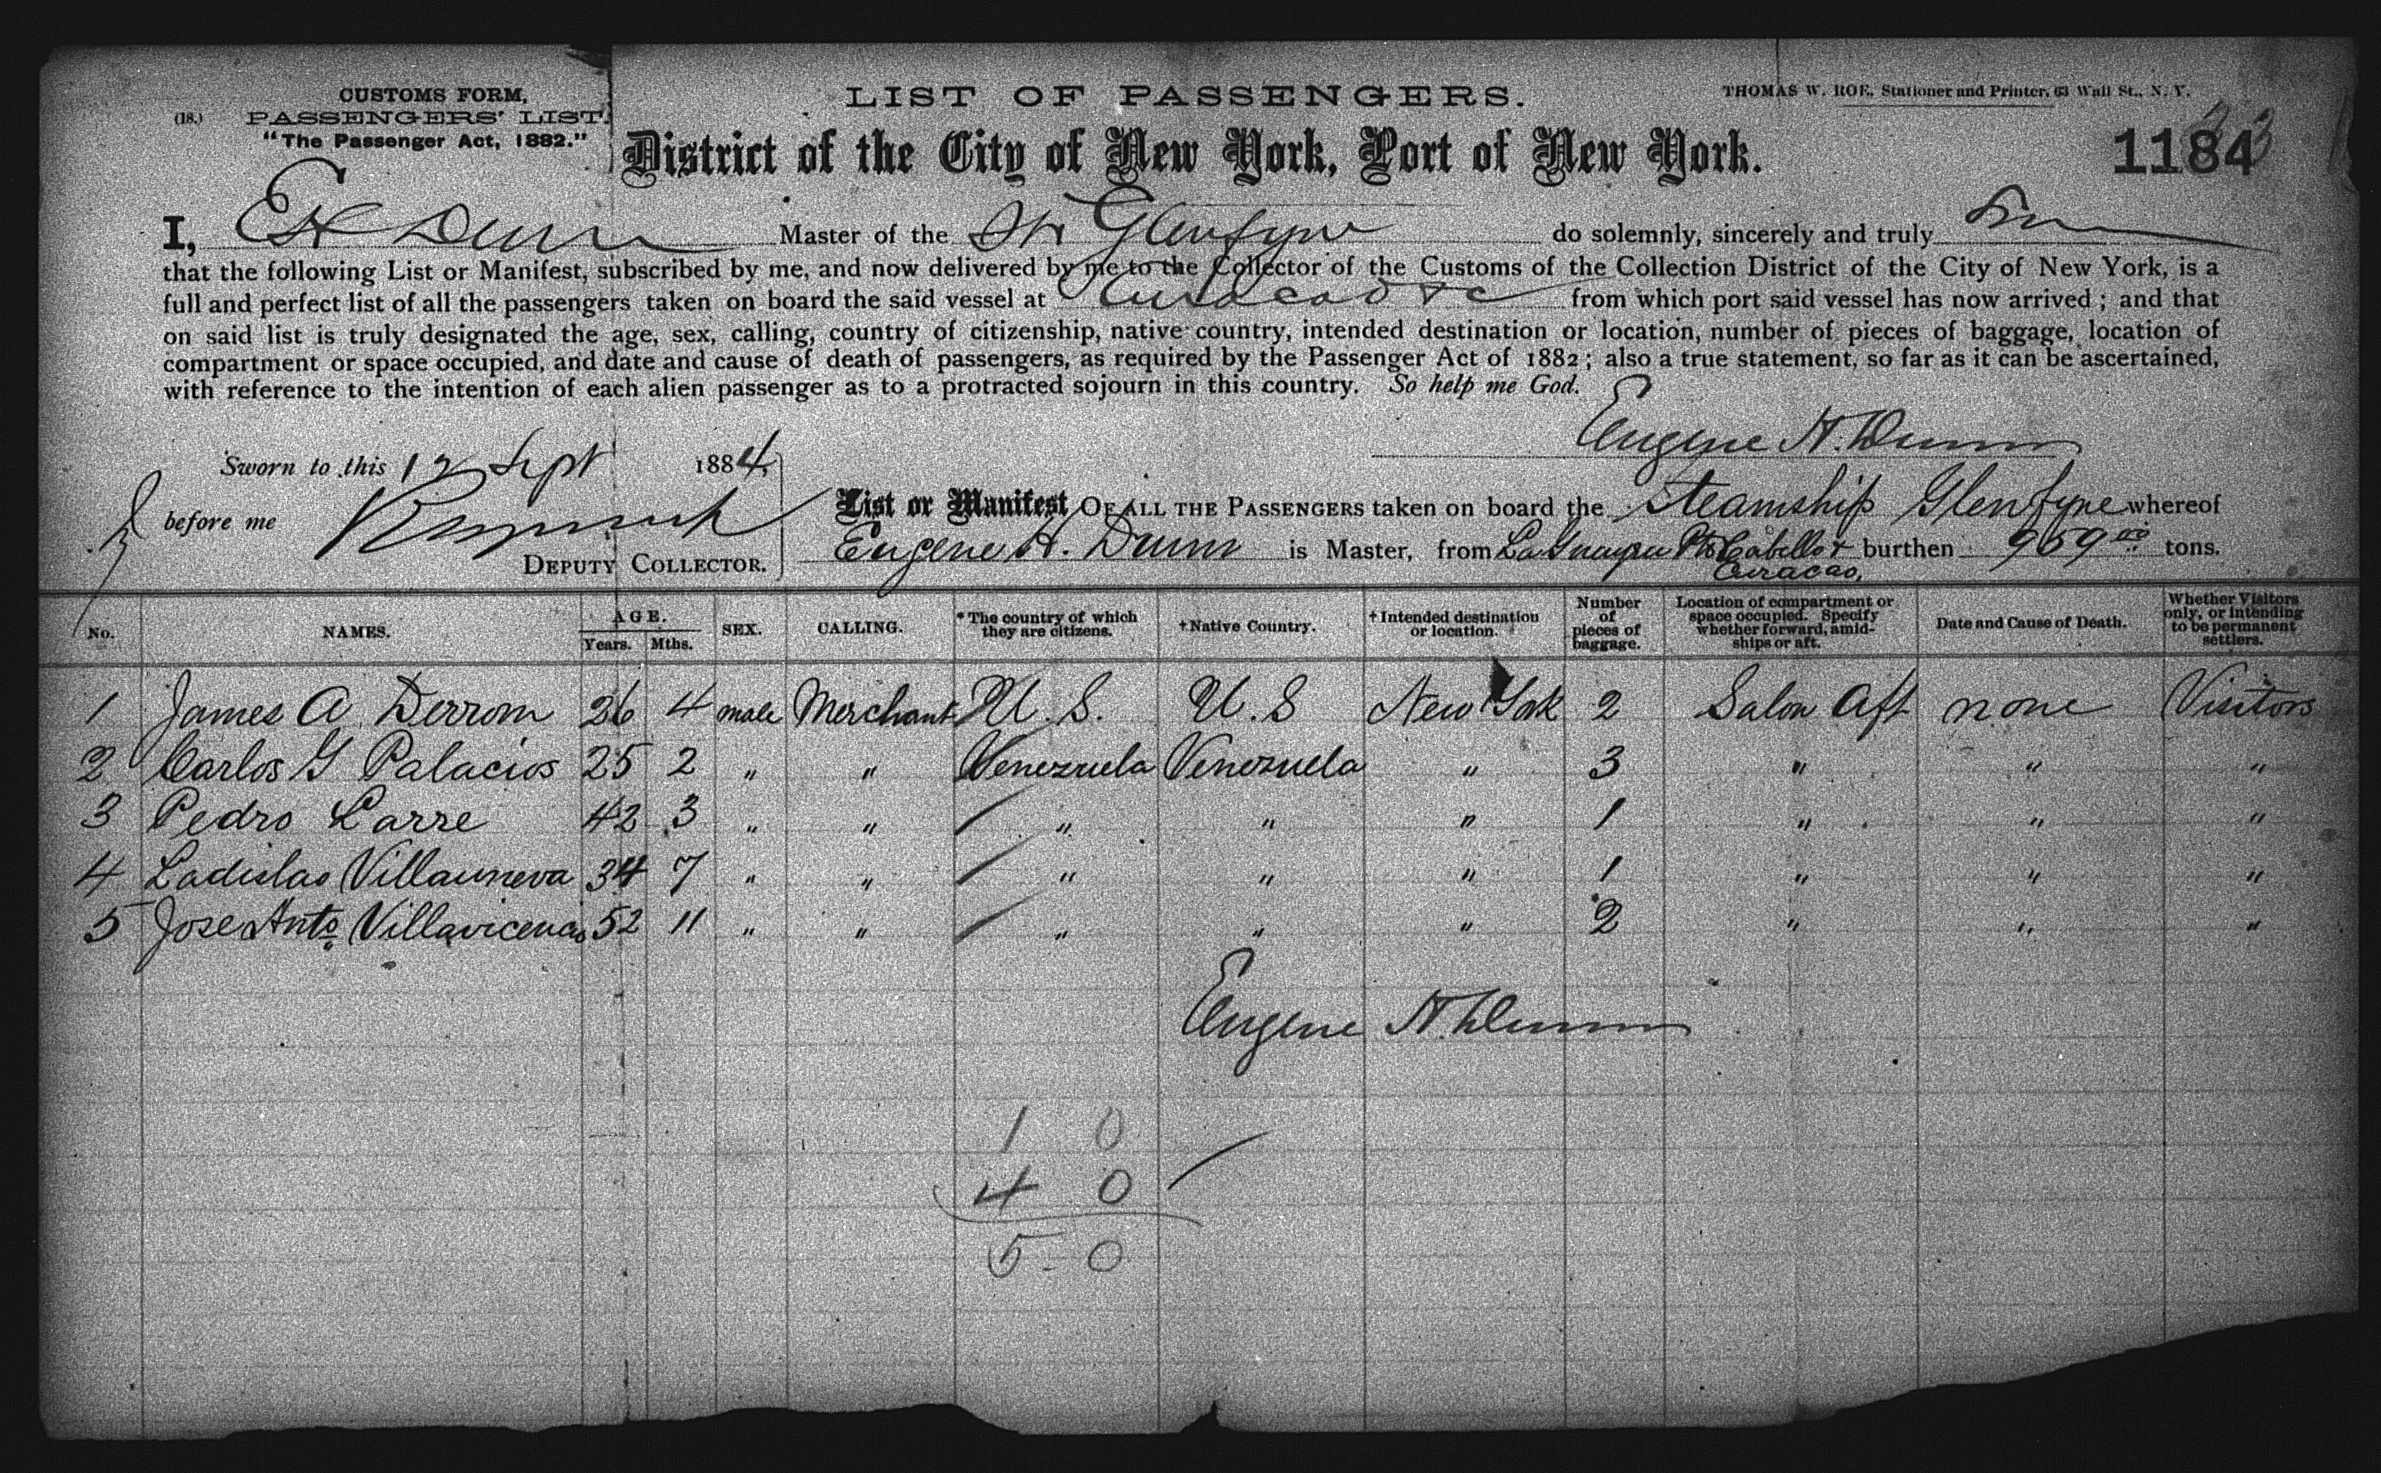 CUSTOMS FORM,
(18.) PASSENGERS' LIST.
"The Passenger Act, 1882."
LIST OF PASSENGERS.
THOMAS W. ROE, Stationer and Printer, 63 Wall St., N. Y.
District of the City of New York, Port of New York.
1184
I, E H Dunn Master of the Str Glenfyne do solemnly, sincerely and truly
that the following List or Manifest, subscribed by me, and now delivered by me to the Collector of the Customs of the Collection District of the City of New York, is a
full and perfect list of all the passengers taken on board the said vessel at Curacao &c from which port said vessel has now arrived; and that
on said list is truly designated the age, sex, calling, country of citizenship, native country, intended destination or location, number of pieces of baggage, location of
compartment or space occupied, and date and cause of death of passengers, as required by the Passenger Act of 1882; also a true statement, so far as it can be ascertained,
with reference to the intention of each alien passenger as to a protracted sojourn in this country. So help me God.
Eugene H. Dunn
Sworn to this 12 Sept 1884,
before me
DEPUTY COLLECTOR.
List or Manifest OF ALL THE PASSENGERS taken on board the Steamship Glenfyne whereof
Eugene H. Dunn is Master, from La Guayra Pto Cabello & burthen 959 00 tons.
Curacao,
No. NAMES. AGE. Years. Mths. SEX. CALLING. *The country of which they are citizens. †Native Country. †Intended destination or location. Number of pieces of baggage. Location of compartment or space occupied. Specify whether forward, amidships or aft. Date and Cause of Death. Whether Visitors only, or intending to be permanent settlers.
1 James A Derrom 26 4 male Merchant U. S. U. S New York 2 Salon Aft none Visitors
2 Carlos G Palacios 25 2 " " Venezuela Venezuela " 3 " " "
3 Pedro Larre 42 3 " " " " " 1 " " "
4 Ladislao Villauneva 34 7 " " " " " 1 " " "
5 Jose Anto Villavicencio 52 11 " " " " " 2 " " "
Eugene H. Dunn
1 0
4 0
5 0